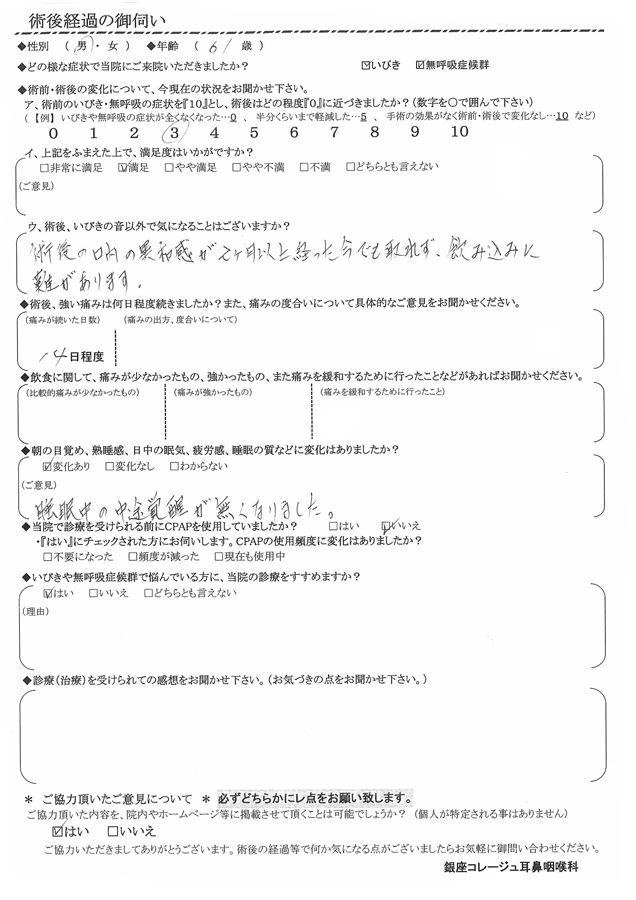 術後経過の御伺い
◆性別 （ 男 ・ 女 ） ◆年齢 （ 61 歳 ）
◆どの様な症状で当院にご来院いただきましたか？ ☑いびき ☑無呼吸症候群
◆術前・術後の変化について、今現在の状況をお聞かせ下さい。
ア、術前のいびき・無呼吸の症状を『10』とし、術後はどの程度『0』に近づきましたか？（数字を〇で囲んで下さい）
（【例】いびきや無呼吸の症状が全くなくなった…0 、 半分くらいまで軽減した…5 、 手術の効果がなく術前・術後で変化なし…10 など）
0 1 2 3 4 5 6 7 8 9 10
イ、上記をふまえた上で、満足度はいかがですか？
□非常に満足 ☑満足 □やや満足 □やや不満 □不満 □どちらとも言えない
（ご意見）
ウ、術後、いびきの音以外で気になることはございますか？
術後の口内の異和感が2ヶ月以上経った今でも取れず、飲み込みに
難があります。
◆術後、強い痛みは何日程度続きましたか？また、痛みの度合いについて具体的なご意見をお聞かせください。
（痛みが続いた日数） （痛みの出方、度合いについて）
14日程度
◆飲食に関して、痛みが少なかったもの、強かったもの、また痛みを緩和するために行ったことなどがあればお聞かせください。
（比較的痛みが少なかったもの） （痛みが強かったもの） （痛みを緩和するために行ったこと）
◆朝の目覚め、熟睡感、日中の眠気、疲労感、睡眠の質などに変化はありましたか？
☑変化あり □変化なし □わからない
（ご意見）
睡眠中の中途覚醒が無くなりました。
◆当院で診療を受けられる前にCPAPを使用していましたか？ □はい ☑いいえ
・『はい』にチェックされた方にお伺いします。CPAPの使用頻度に変化はありましたか？
□不要になった □頻度が減った □現在も使用中
◆いびきや無呼吸症候群で悩んでいる方に、当院の診療をすすめますか？
☑はい □いいえ □どちらとも言えない
（理由）
◆診療（治療）を受けられての感想をお聞かせ下さい。（お気づきの点をお聞かせ下さい。）
＊ ご協力頂いたご意見について ＊ 必ずどちらかにレ点をお願い致します。
ご協力頂いた内容を、院内やホームページ等に掲載させて頂くことは可能でしょうか？（個人が特定される事はありません）
☑はい □いいえ
ご協力いただきましてありがとうございます。術後の経過等で何か気になる点がございましたらお気軽に御問い合わせください。
銀座コレージュ耳鼻咽喉科